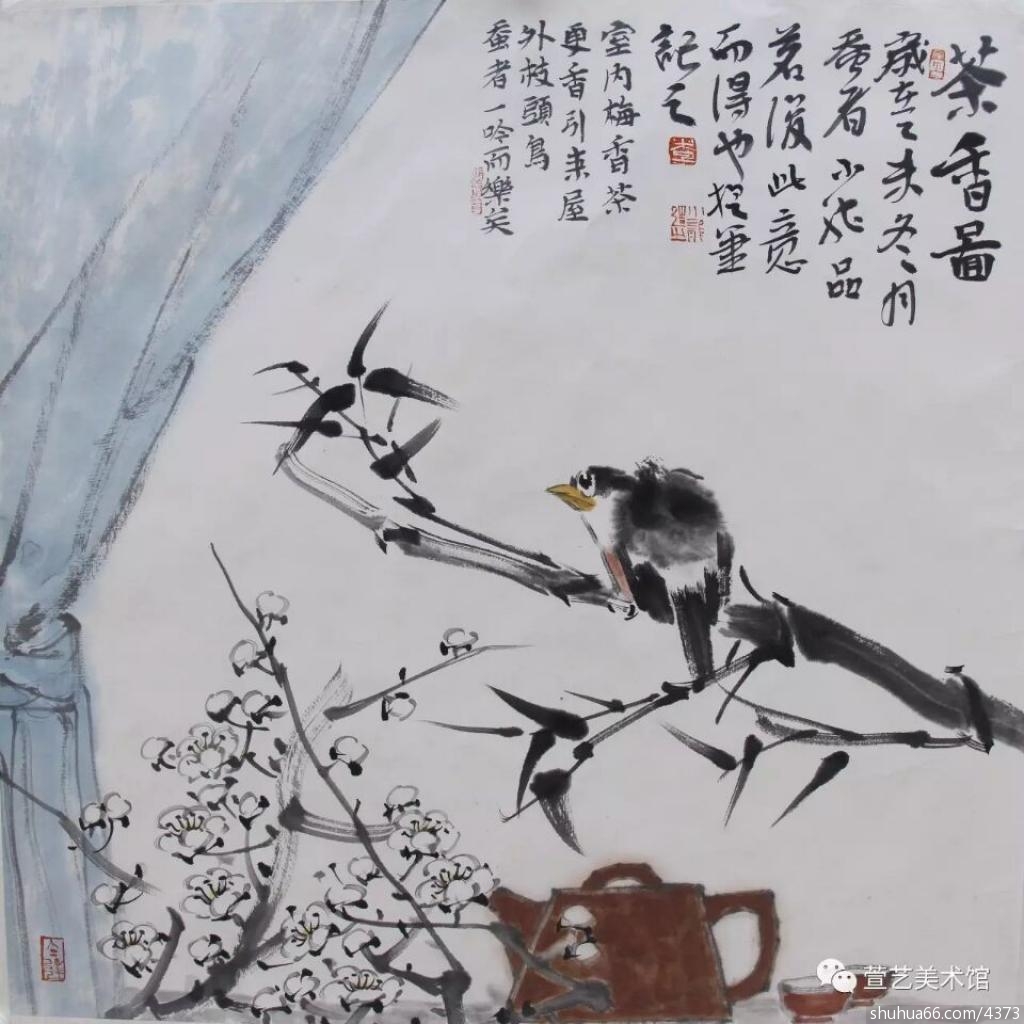 茶香圖
歲在乙未冬月
蚕者小飛品
茗後此意
而得也提筆
記之
室内梅香茶
更香引来屋
外枝頭鳥
蚕者一吟而樂矣
萱艺美术馆
shuhua66.com/4373